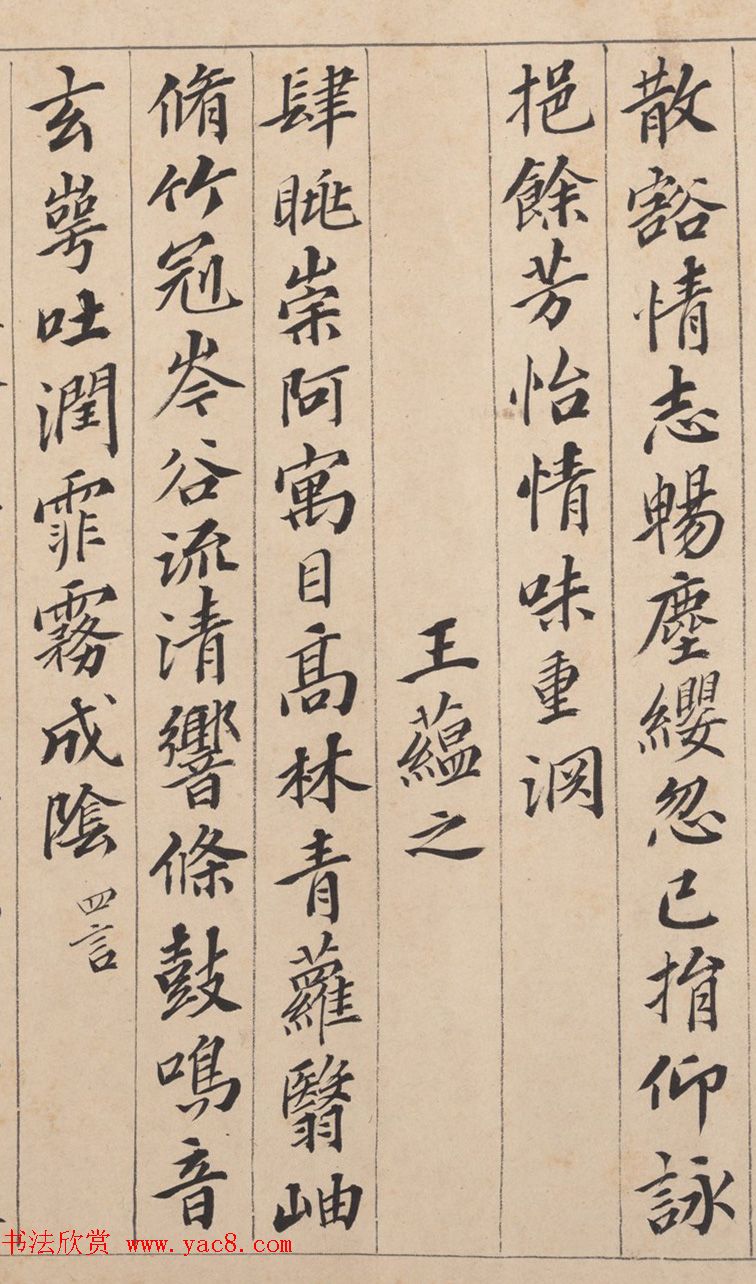 散豁情志暢塵纓忽已捐仰詠
挹餘芳怡情味重淵
王蘊之
肆眺崇阿寓目高林青蘿翳岫
脩竹冠岑谷流清響條鼓鳴音
玄崿吐潤霏霧成陰 四言
书法欣赏 www.yac8.com